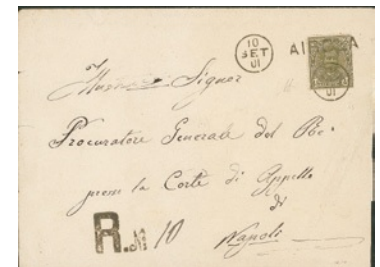 10
SET
01
01
Signor
Procuratore Generale del Re
presso la Corte di Appello
di
Napoli
R. N 10